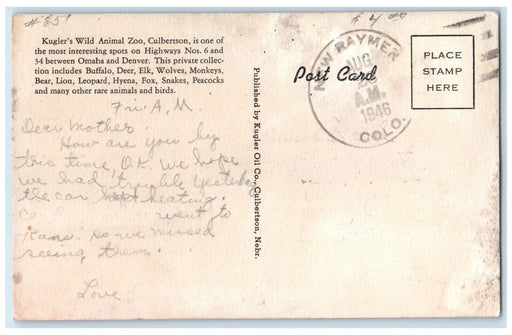 #851
$4.00
Kugler's Wild Animal Zoo, Culbertson, is one of
the most interesting spots on Highways Nos. 6 and
34 between Omaha and Denver. This private collec-
tion includes Buffalo, Deer, Elk, Wolves, Monkeys,
Bear, Lion, Leopard, Hyena, Fox, Snakes, Peacocks
and many other rare animals and birds.
Fri. A.M.
Dear Mother.
How are you by
this time O.K. we hope
we had trouble yesterday
the car kept heating.
went to
Kans. so we missed
seeing them.
Love
Published by Kugler Oil Co., Culbertson, Nebr.
Post Card
NEW RAYMER
AUG
A.M.
1946
COLO.
PLACE
STAMP
HERE